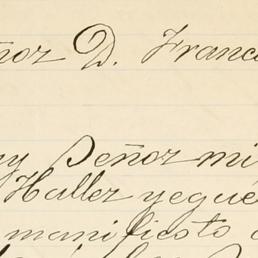 ñor D. Franc
y Señor mi
Hallez yegué
manificoto a